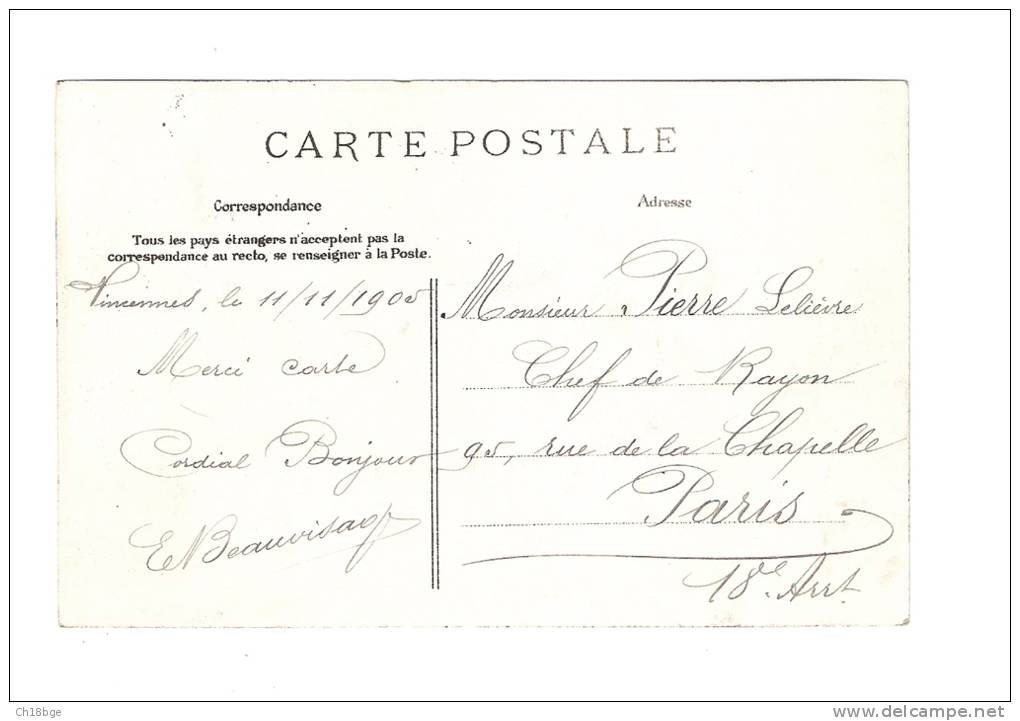 CARTE POSTALE
Correspondance
Tous les pays étrangers n'acceptent pas la
correspondance au recto, se renseigner à la Poste.
Vincennes, le 11/11/1905
Merci carte
Cordial Bonjour
E Beauvisage
Adresse
Monsieur Pierre Lelièvre
Chef de Rayon
95, rue de la Chapelle
Paris
18e. Arrt.
Ch18bge
www.delcampe.net